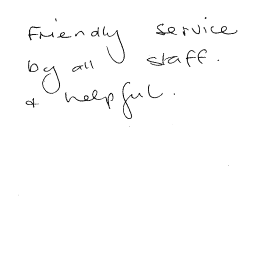 Friendly service
by all staff.
& helpful.